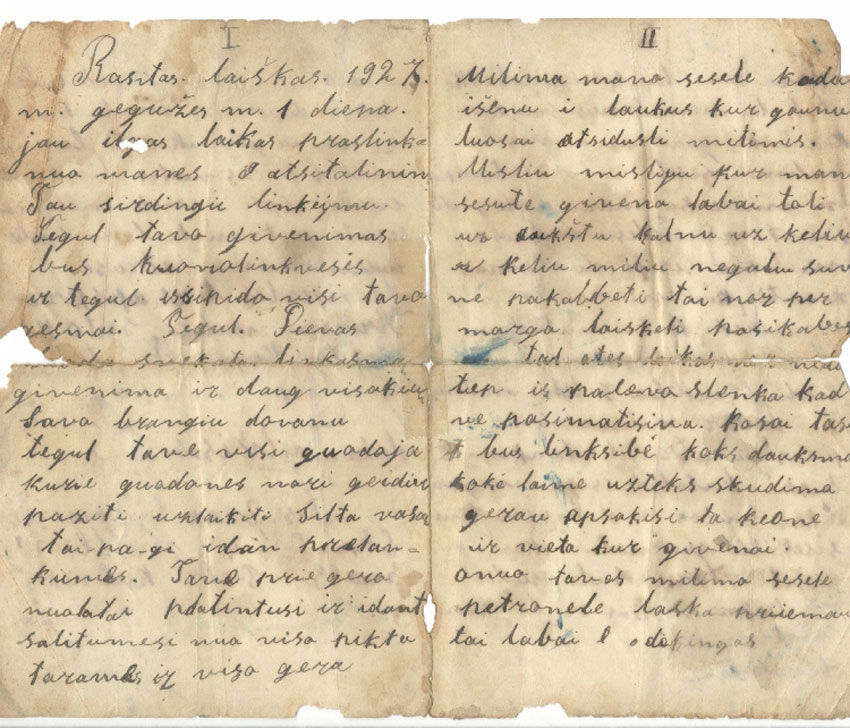 I
Rasitas. laiškas. 1927.
m. gegužes m. 1 diena.
jau ilgas laikas praslink=
nuo manes
Tau sirdingu linkėjmu.
Tegul tavo givenimas
bus
ir tegul issipido visi tavo
Tegul. Dievas
sveikata, linksmą
givenima ir daug visokių
Savo brangiu dovanu
tegul tave visi guodoja
kurie guodones nori
paziti uzlaikiti Silta vasa
tai-pa-gi idan prelan=
kumes. Tave prie gero
nuolatai platintusi ir idant
salitumesi nuo viso pikto
tarames ir viso gero
II
Milima mano sesele kada
išenu i laukus kur gaunu
luosai atsidusti milimis.
Misliu mislyju kur man
sesute givena labai toli
uz aukštu kalnu uz keliu
keliu miliu negaliu suv
ne pakalbeti tai nor per
marga laiskeli pasikalbes
tad ates laikas
tep is paleva slenka kad
ve pasimatisiva. kosai tas
bus linksibė koks dauksma
kokė laime uzteks skudima
gerau apsakisi ta keone
ir vieta kur givenai.
onuo tavos milima sesele
petronele laska priemau
tai labai dekingas